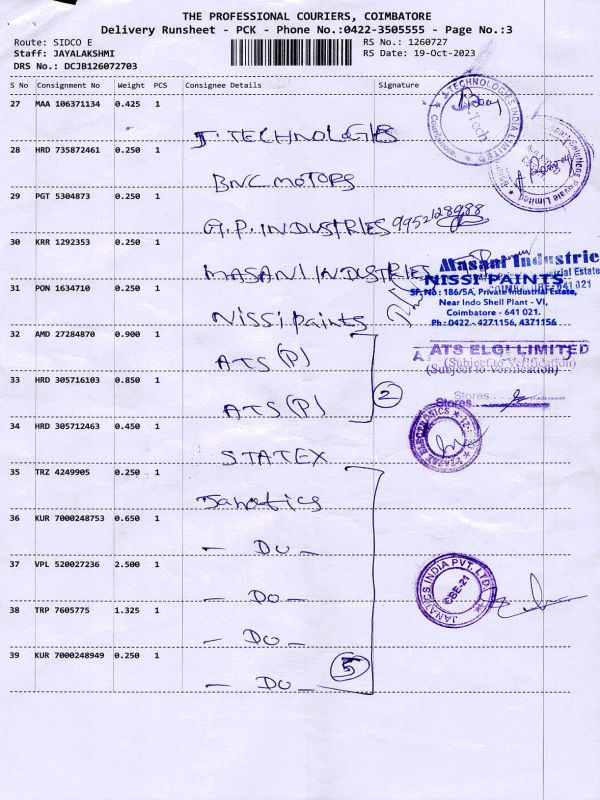 THE PROFESSIONAL COURIERS, COIMBATORE
Delivery Runsheet - PCK - Phone No.:0422-3505555 - Page No.:3
Route: SIDCO E
RS No.: 1260727
Staff: JAYALAKSHMI
RS Date: 19-Oct-2023
DRS No.: DCJB126072703
S No Consignment No Weight PCS Consignee Details Signature
27 MAA 106371134 0.425 1
J. TECHNOLOGIES
28 HRD 735872461 0.250 1
BNC MOTORS
29 PGT 5304873 0.250 1
G.P. INDUSTRIES 9952128988
30 KRR 1292353 0.250 1
MASANI INDUSTRIES
Masani Industrie
31 PON 1634710 0.250 1
Nissi Paints
NISSI PAINTS
SF. No : 186/5A, Private Industrial Estate,
Near Indo Shell Plant - VI,
Coimbatore - 641 021.
Ph : 0422 - 4271156, 4371156
32 AMD 27284870 0.900 1
ATS (P)
ATS ELGI LIMITED
(Subject to Verification)
33 HRD 305716103 0.850 1
ATS (P)
2
Stores
34 HRD 305712463 0.450 1
STATEX
35 TRZ 4249905 0.250 1
Janatics
36 KUR 7000248753 0.650 1
- DO -
37 VPL 520027236 2.500 1
- DO -
JANATICS INDIA PVT. LTD.
CBE-21
38 TRP 7605775 1.325 1
- DO -
39 KUR 7000248949 0.250 1
- DO -
5